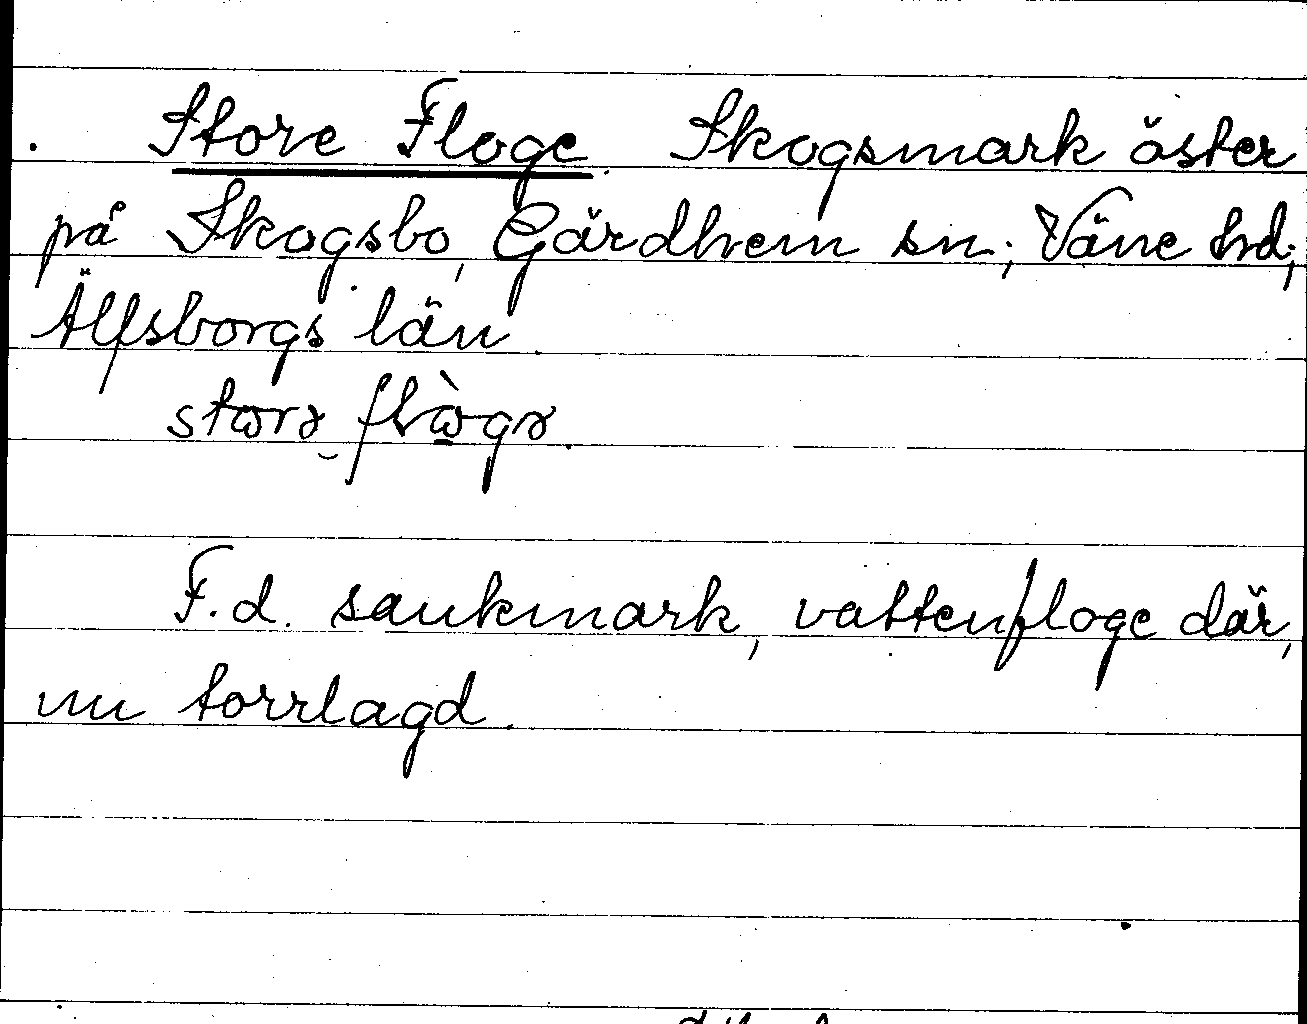 Store Floge Skogsmark öster
på Skogsbo, Gärdhem sn; Väne hd;
Älfsborgs län.
F.d. sankmark, vattenfloge där,
nu torrlagd.